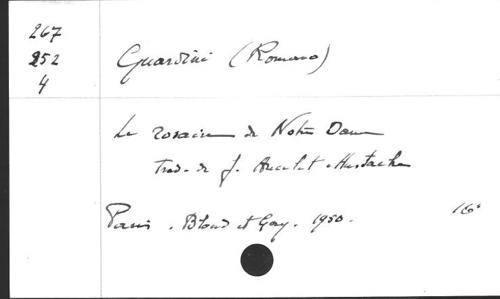 267
252
4
Guardini (Romano)
Le rosaire de Notre Dame
trad. de J. Ancelet-Hustache
Paris. Bloud et Gay. 1950. 16°